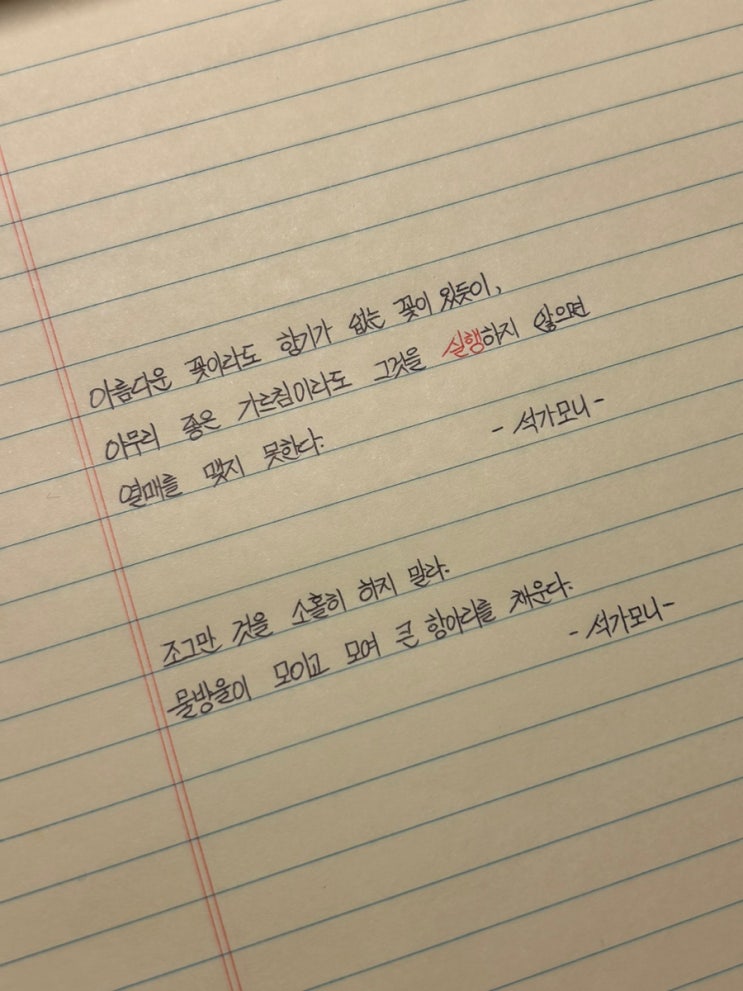 아름다운 꽃이라도 향기가 없는 꽃이 있듯이,
아무리 좋은 가르침이라도 그것을 실행하지 않으면
열매를 맺지 못한다.
- 석가모니-
조그만 것을 소홀히 하지 말라.
물방울이 모이고 모여 큰 항아리를 채운다.
- 석가모니-